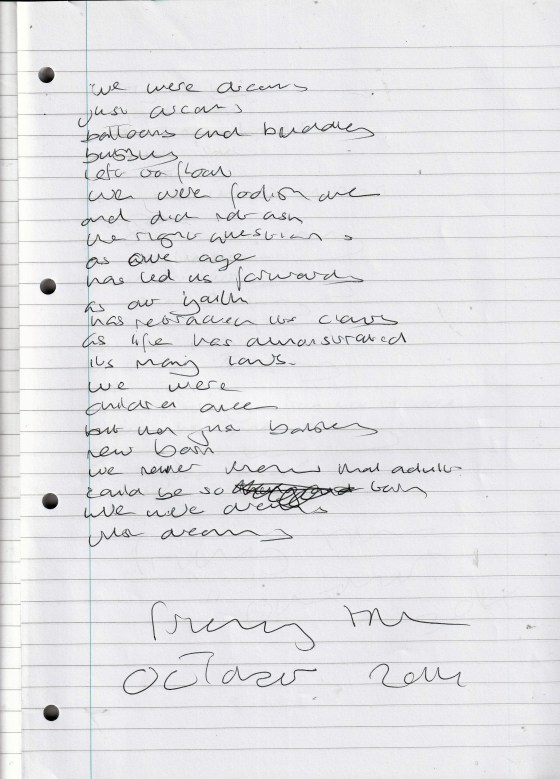 we were dreams
just dreams
balloons and
bubbles
lets go float
we were foolish once
and did not ask
the right questions
as age
has led us forwards
as our
has retracted its claws
as life has demonstrated
its many laws.
we were
children once
but not just babies
new born
we never knew that adults
could be so
we were dreams
just dreams
October